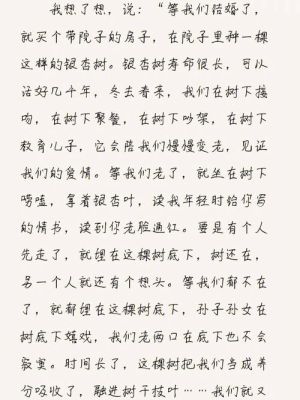 我想了想，说：“等我们结婚了，
就买个带院子的房子，在院子里种一棵
这样的银杏树。银杏树寿命很长，可以
活好几千年，冬去春来，我们在树下接
吻，在树下聚餐，在树下吵架，在树下
教育儿子，它会陪我们慢慢变老，见证
我们的爱情。等我们老了，就坐在树下
唠嗑，拿着银杏叶，读我年轻时给你写
的情书，读到你老脸通红。要是有个人
先走了，就埋在这棵树底下，树还在，
另一个人就还有个想头。等我们都不在
了，就都埋在这棵树底下，孙子孙女在
树底下嬉戏，我们老两口在底下也不会
寂寞。时间长了，这棵树把我们当成养
分吸收了，融进树干枝叶……我们就又